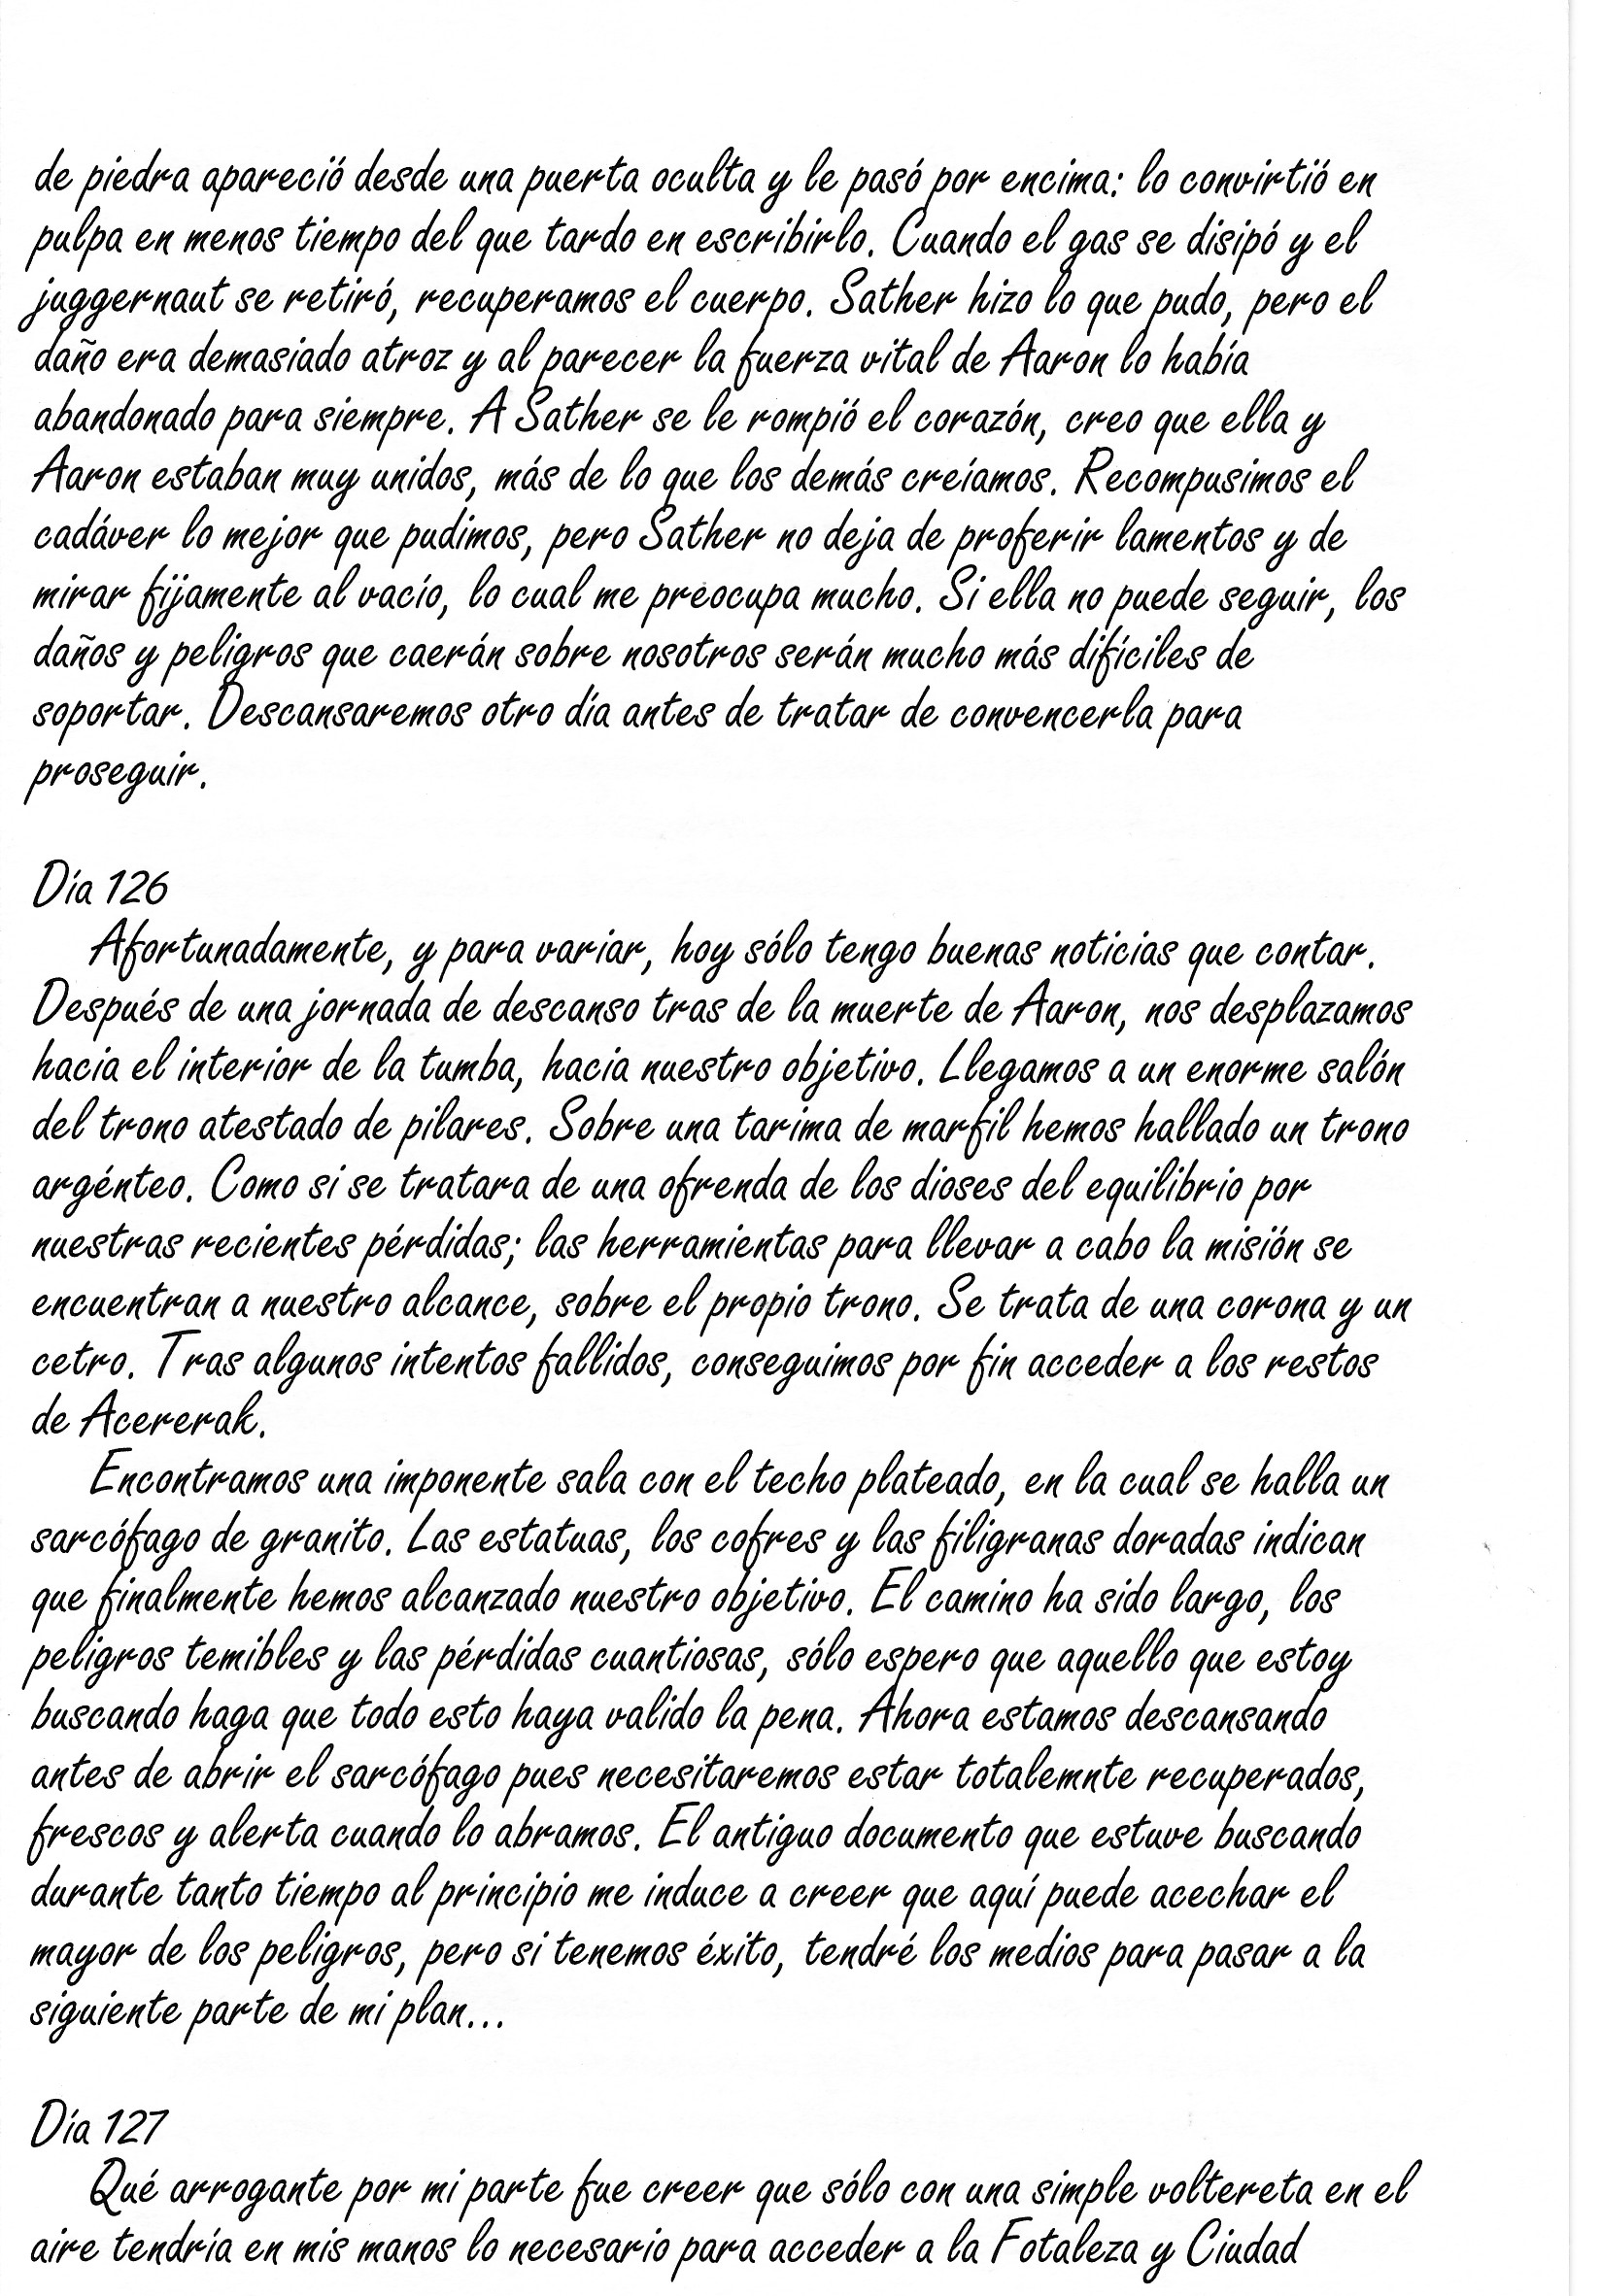 de piedra apareció desde una puerta oculta y le pasó por encima: lo convirtió en
pulpa en menos tiempo del que tardo en escribirlo. Cuando el gas se disipó y el
juggernaut se retiró, recuperamos el cuerpo. Sather hizo lo que pudo, pero el
daño era demasiado atroz y al parecer la fuerza vital de Aaron lo había
abandonado para siempre. A Sather se le rompió el corazón, creo que ella y
Aaron estaban muy unidos, más de lo que los demás creíamos. Recompusimos el
cadáver lo mejor que pudimos, pero Sather no deja de proferir lamentos y de
mirar fijamente al vacío, lo cual me preocupa mucho. Si ella no puede seguir, los
daños y peligros que caerán sobre nosotros serán mucho más difíciles de
soportar. Descansaremos otro día antes de tratar de convencerla para
proseguir.
Día 126
Afortunadamente, y para variar, hoy sólo tengo buenas noticias que contar.
Después de una jornada de descanso tras de la muerte de Aaron, nos desplazamos
hacia el interior de la tumba, hacia nuestro objetivo. Llegamos a un enorme salón
del trono atestado de pilares. Sobre una tarima de marfil hemos hallado un trono
argénteo. Como si se tratara de una ofrenda de los dioses del equilibrio por
nuestras recientes pérdidas; las herramientas para llevar a cabo la misión se
encuentran a nuestro alcance, sobre el propio trono. Se trata de una corona y un
cetro. Tras algunos intentos fallidos, conseguimos por fin acceder a los restos
de Acererak.
Encontramos una imponente sala con el techo plateado, en la cual se halla un
sarcófago de granito. Las estatuas, los cofres y las filigranas doradas indican
que finalmente hemos alcanzado nuestro objetivo. El camino ha sido largo, los
peligros temibles y las pérdidas cuantiosas, sólo espero que aquello que estoy
buscando haga que todo esto haya valido la pena. Ahora estamos descansando
antes de abrir el sarcófago pues necesitaremos estar totalemnte recuperados,
frescos y alerta cuando lo abramos. El antiguo documento que estuve buscando
durante tanto tiempo al principio me induce a creer que aquí puede acechar el
mayor de los peligros, pero si tenemos éxito, tendré los medios para pasar a la
siguiente parte de mi plan...
Día 127
Qué arrogante por mi parte fue creer que sólo con una simple voltereta en el
aire tendría en mis manos lo necesario para acceder a la Fotaleza y Ciudad